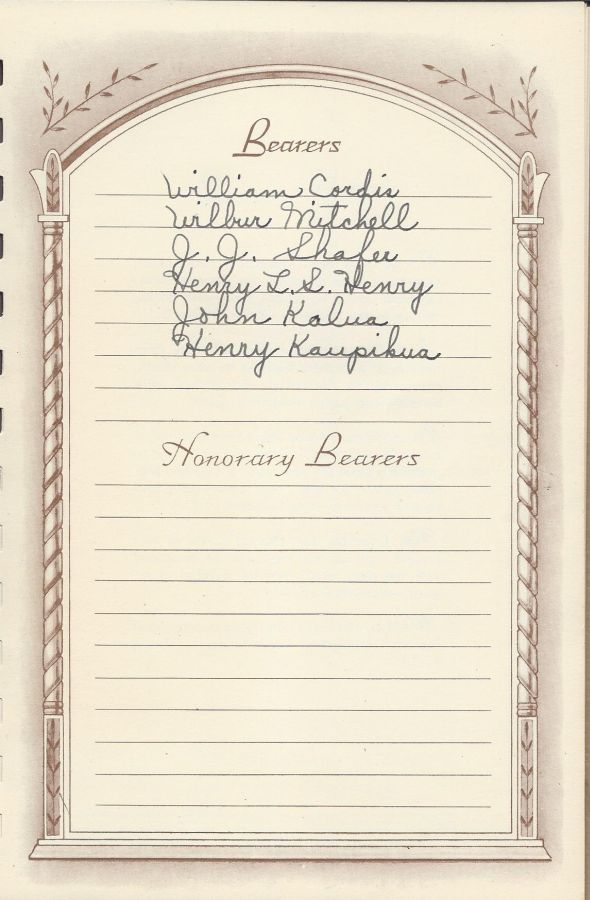 Bearers
William Cordis
Wilbur Mitchell
J. J. Shafer
Henry L.S. Henry
John Kalua
Henry Kaupikua
Honorary Bearers